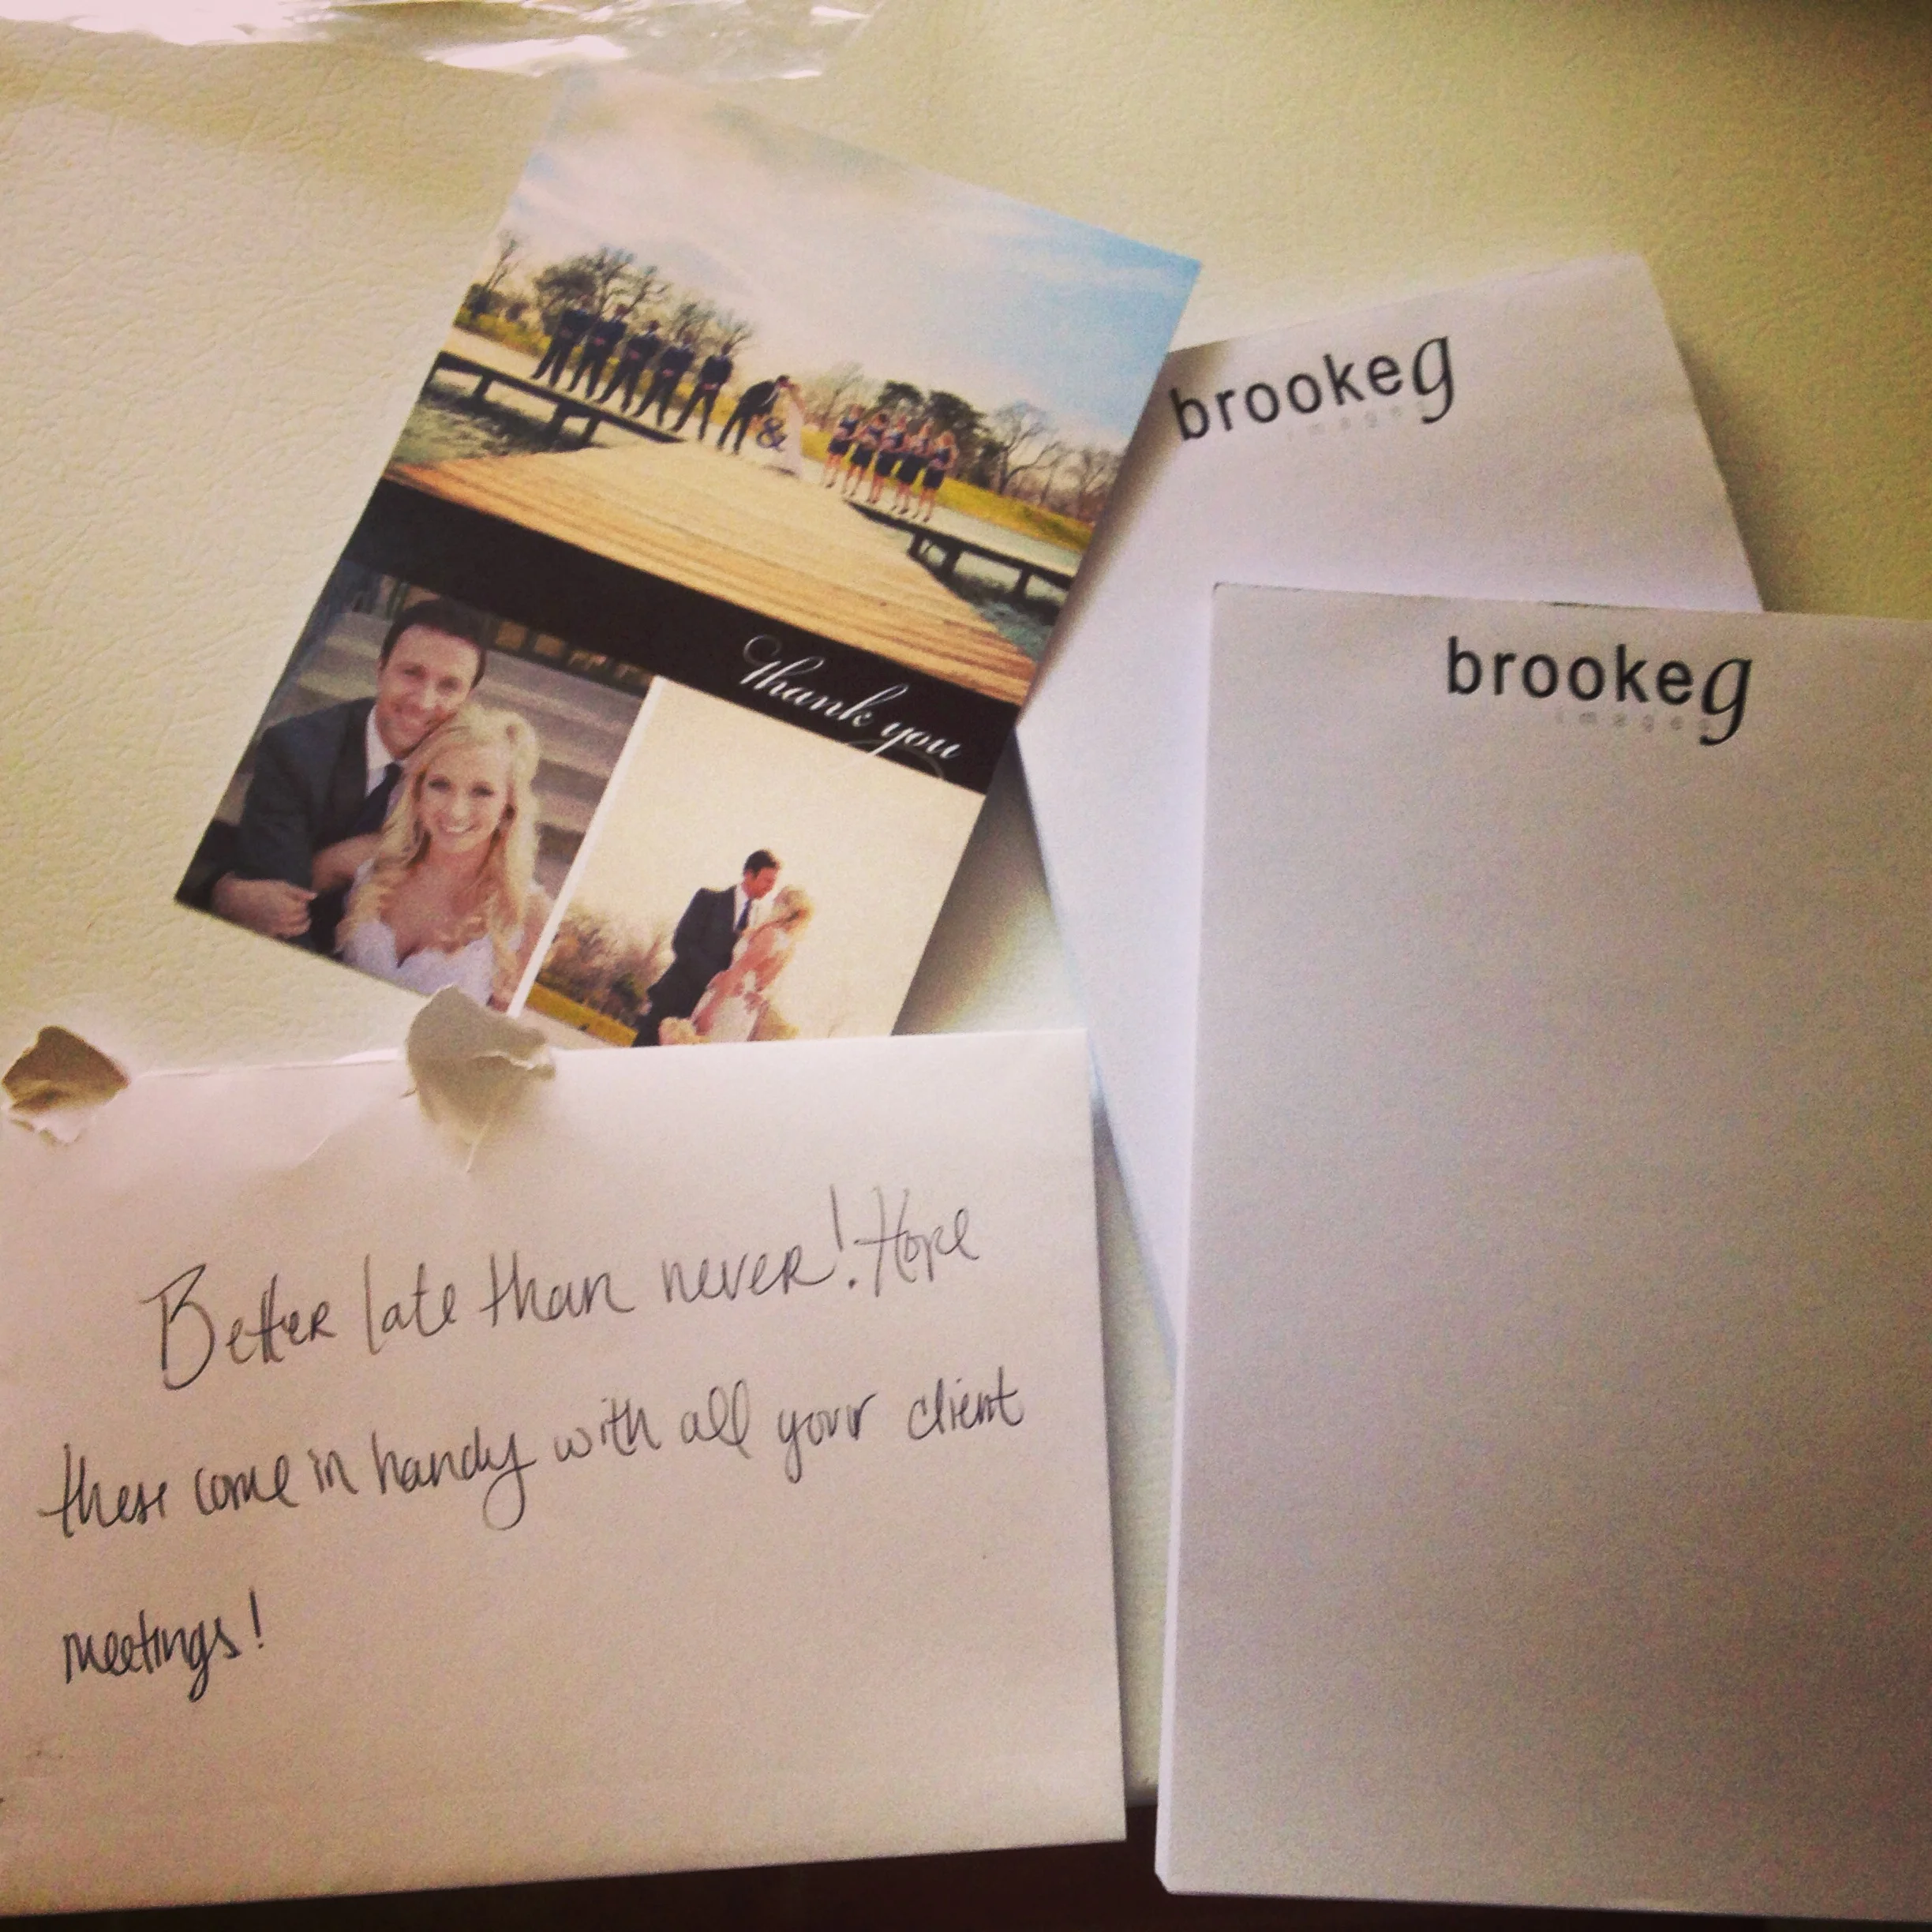 &
Thank you
brookeg
images
brookeg
images
Better late than never! Hope
these come in handy with all your client
meetings!